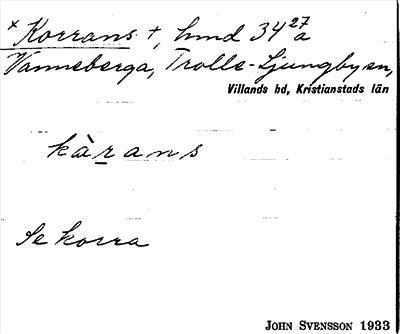 × Korrans †, hmd 34 27 a
Vanneberga, Trolle-Ljungby sn,
Villands hd, Kristianstads län
kàrans
Se korra
JOHN SVENSSON 1933